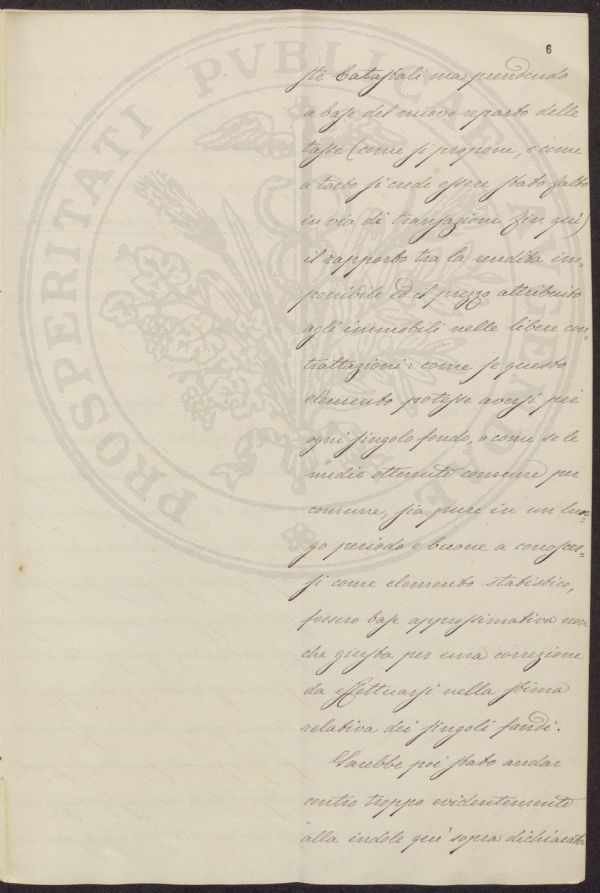 6
PROSPERITATI PVBLICAE AVGENDAE
ste Catastali ma prendendo
a base del nuovo reparto delle
tasse (come si propone, e come
a torto si crede essere stato fatto
in via di transazione fin qui)
il rapporto tra la rendita im-
ponibile ed il prezzo attribuito
agli immobili nelle libere con-
trattazioni: come se questo
elemento potesse aversi per
ogni singolo fondo, o come se le
medie ottenute comune per
comune, sia pure in un lun-
go periodo e buone a conoscer-
si come elemento statistico,
fossero base approssimativa non
che giusta per una correzione
da effettuarsi nella stima
relativa dei singoli fondi.
Sarebbe poi stato andar
contro troppo evidentemente
alla indole qui sopra dichiarata